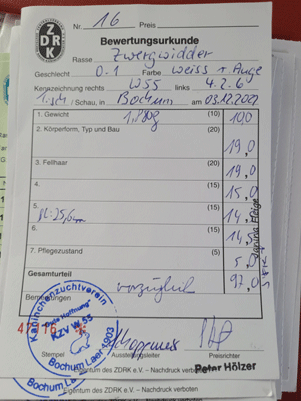 Nr. 16 Preis
ZDRK
Bewertungsurkunde
Rasse Zwergwidder
Geschlecht 0.1 Farbe weiss r. Auge
Kennzeichnung rechts W55 links 4.2.6
Schau, in Bochum am 03.12.
1. Gewicht (10) 10,0
2. Körperform, Typ und Bau (20) 19,0
3. Fellhaar (20) 19,0
4. (15) 15,0
5. (15) 14,5
6. (15) 14,5
7. Pflegezustand (5) 5,0
Gesamturteil vorzüglich 97,0
Bemerkungen
Kaninchenzuchtverein
KZV W 53
Bochum Laer 1903
Stempel Ausstellungsleiter Preisrichter
Peter Hölzer
Eigentum des ZDRK e.V. – Nachdruck verboten
Eigentum des ZDRK e.V. – Nachdruck verboten